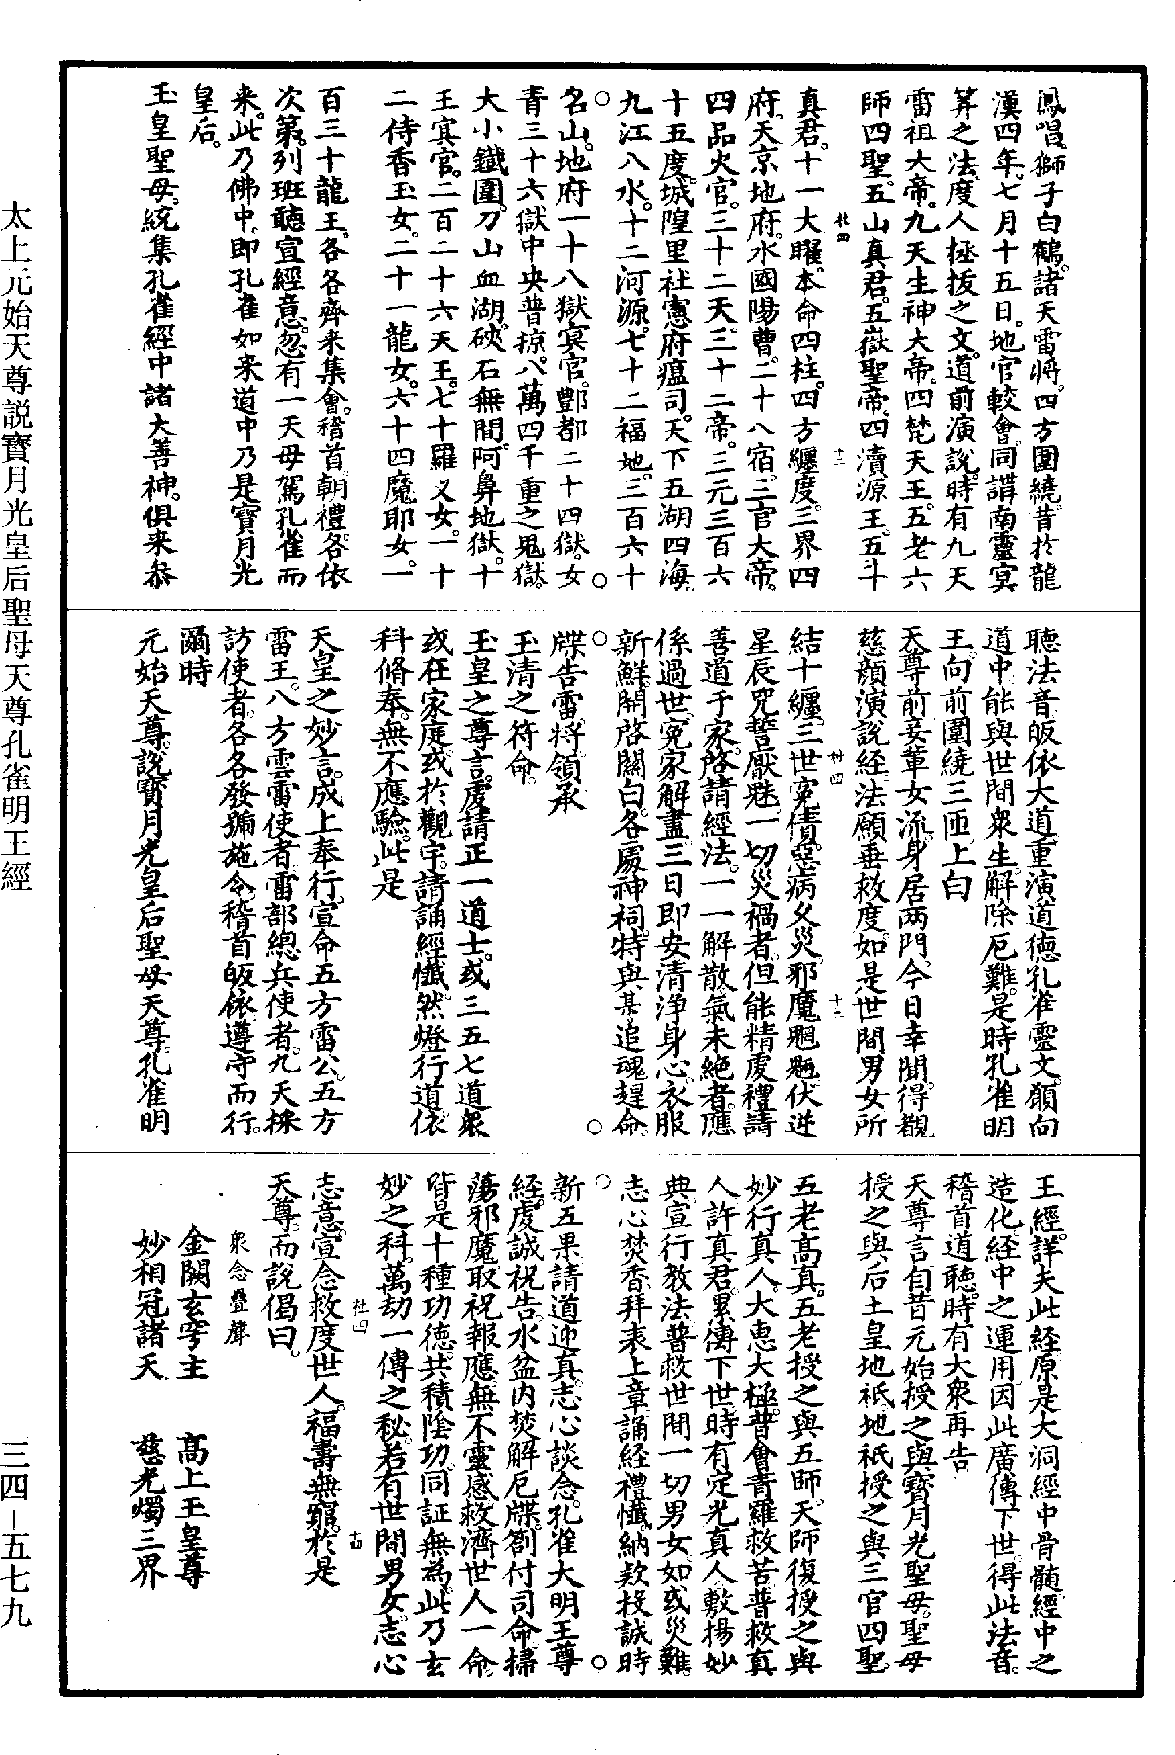 鳳唱。獅子白鶴。諸天雷將。四方圍繞。昔於龍
漢四年。七月十五日。地官較會。同謂南靈冥
筭之法。度人拯拔之文。道前演說。時有九天
雷祖大帝。九天生神大帝。四梵天王。五老六
師四聖。五山真君。五嶽聖帝。四瀆源王。五斗
真君。十一大曜。本命四柱。四方纏度。三界四
府。天京地府。水國陽曹。二十八宿。三官大帝。
四品火官。三十二天。三十二帝。三元三百六
十五度。城隍里社。憲府瘟司。天下五湖四海
九江八水。十二河源。七十二福地。三百六十
名山。地府一十八獄冥官。酆都二十四獄。女
青三十六獄。中央普掠。八萬四千重之鬼獄。
大小鐵圍。刀山血湖。硤石無間。阿鼻地獄。十
王冥官。二百二十六天王。七十羅义女。一十
二侍香玉女。二十一龍女。六十四魔耶女。一
百三十龍王。各各齊來集會。稽首朝禮。各依
次第。列班聽宣經意。忽有一天母駕孔雀而
來。此乃佛中。即孔雀如來。道中乃是寶月光
皇后。
玉皇聖母。統集孔雀經中諸大善神。俱來叅
聽法音。皈依大道。重演道德孔雀靈文。願向
道中。能與世間衆生。解除厄難。是時孔雀明
王。向前圍繞三匝。上白
天尊前。妾軰女流。身居兩門。今日幸聞。得覩
慈顏。演說經法。願垂救度。如是世間男女。所
結十纏。三世寃債。惡病久災。邪魔魍魎。伏逆
星辰。咒誓厭魅。一切災禍者。但能精虔。禮請
善道于家。啓請經法。一一解散。氣未絶者。應
係過世。寃家解盡。三日即安。清淨身心。衣服
新鮮。開啓關白。各處神祠。特與某追魂趕命。
牒告雷將。領承
玉清之符命。
玉皇之尊言。虔請正一道士。或三五七道衆
或在家庭。或於觀宇。請誦經懺。然燈行道。依
科脩奉。無不應驗。此是
天皇之妙言。成上奉行。宣命五方雷公。五方
雷王。八方雲雷使者。雷部總兵使者。九天採
訪使者。各各發號施令。稽首皈依。遵守而行。
爾時
元始天尊。說寶月光皇后聖母天尊孔雀明
王經。詳夫此經。原是大洞經中骨髓。經中之
造化。經中之運用。因此廣傳下世。得此法音。
稽首道聽。時有大衆再告
天尊言。自昔元始授之與寶月光聖母。聖母
授之與后土皇地祇。地祇授之與三官四聖。
五老高真。五老授之與五師。天師復授之與
妙行真人。大惠大極。普會青羅。救苦普救真
人。許真君。累傳下世。時有定光真人。敷揚妙
典。宣行教法。普救世間一切男女。如或災難。
志心焚香。拜表上章。誦經禮懺。納款投誠。時
新五果。請道迎真。志心談念。孔雀大明王尊
經。虔誠祝告。水盆内焚解厄牒。劄付司命。掃
蕩邪魔。取祝報應。無不靈感。救濟世人。一命
皆是十種功德。共積陰功。同証無爲。此乃玄
妙之科。萬劫一傳之秘。若有世間男女。志心
志意。宣念救度世人。福壽無窮。於是
天尊。而說偈曰。
衆念疊聲
金闕玄穹主　高上玉皇尊
妙相冠諸天　慈光燭三界
太上元始天尊説寶月光皇后聖母天尊孔雀明王經
三四－五七九